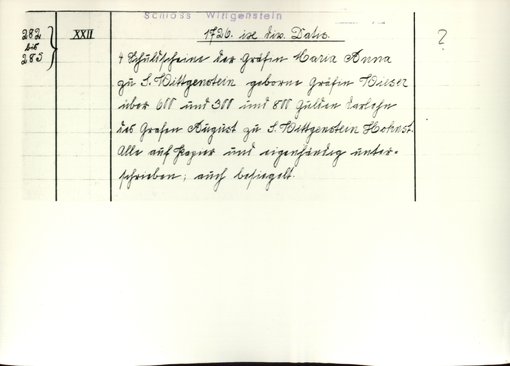 Schloss Wittgenstein
282 bis 285 XXII 1726. in div. Datis. ?
4 Schuldscheine der Gräfin Maria Anna
zu S. Wittgenstein geborne Gräfin Wieser
über 600 und 300 und 800 Gulden Darlehn
des Grafen August zu S. Wittgenstein Hohnst.
Alle auf Papier und eigenhändig unter-
schrieben; auch besiegelt.